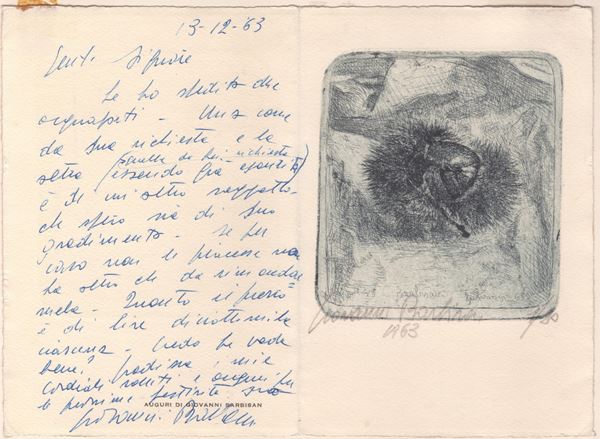 13-12-'63
Gent. Signore
Le ho spedito due
acqueforti - Una come
da sua richiesta e la
altra (quella da Lei richiesta
essendo già esaurita)
è di un altro soggetto
che spero sia di suo
gradimento - Se per
caso non le piacesse non
ha altro che da rimandar
mela - Quanto il prezzo
è di lire diciottomila
ciascuna - Credo le vada
bene? Gradisca i miei
cordiali saluti e auguri per
le prossime festività suo
AUGURI DI GIOVANNI BARBISAN
Giovanni Barbisan
Giovanni Barbisan
1963